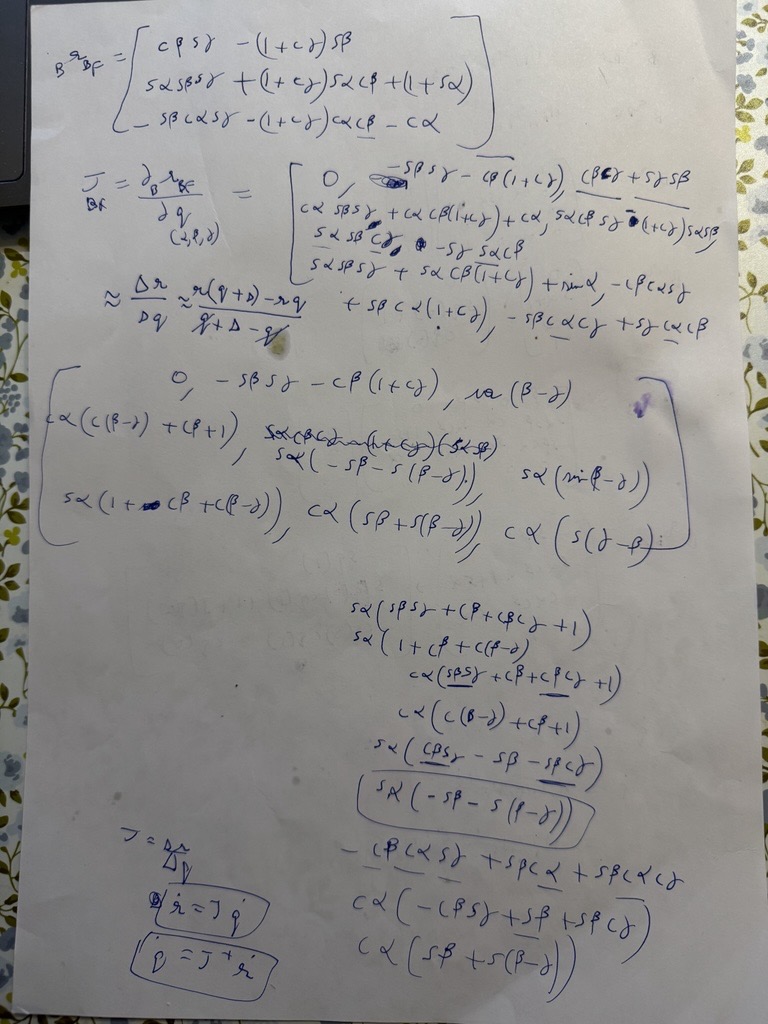 B r BF = [ cβ sγ - (1+cγ) sβ
sα sβ sγ + (1+cγ) sα cβ + (1+sα)
- sβ cα sγ - (1+cγ) cα cβ - cα ]
J BF = ∂ B r BF / ∂q (α,β,γ) = [ 0, -sβ sγ - cβ (1+cγ), cβ cγ + sγ sβ
cα sβ sγ + cα cβ (1+cγ) + cα, sα cβ sγ - (1+cγ) sα sβ,
sα sβ cγ - sγ sα cβ
sα sβ sγ + sα cβ (1+cγ) + sin α, - cβ cα sγ
+ sβ cα (1+cγ), - sβ cα cγ + sγ cα cβ
≈ Δr / Δq ≈ r(q+Δ) - rq / q+Δ-q
[ 0, - sβ sγ - cβ (1+cγ), (β-γ)
cα (c(β-γ) + cβ+1),
sα (-sβ - s(β-γ)), sα (sin β-γ))
sα (1+ cβ + c(β-γ)), cα (sβ + s(β-γ)), cα (s(γ-β) ]
sα (sβ sγ + cβ + cβ cγ + 1)
sα (1 + cβ + c(β-γ)
cα (sβ sγ + cβ + cβ cγ + 1)
cα (c(β-γ) + cβ+1)
sα (cβ sγ - sβ - sβ cγ)
sα (-sβ - s(β-γ))
J = Δr / Δq
- cβ cα sγ + sβ cα + sβ cα cγ
ṙ = J q̇
cα (-cβ sγ + sβ + sβ cγ)
q̇ = J⁺ ṙ
cα (sβ + s(β-γ))